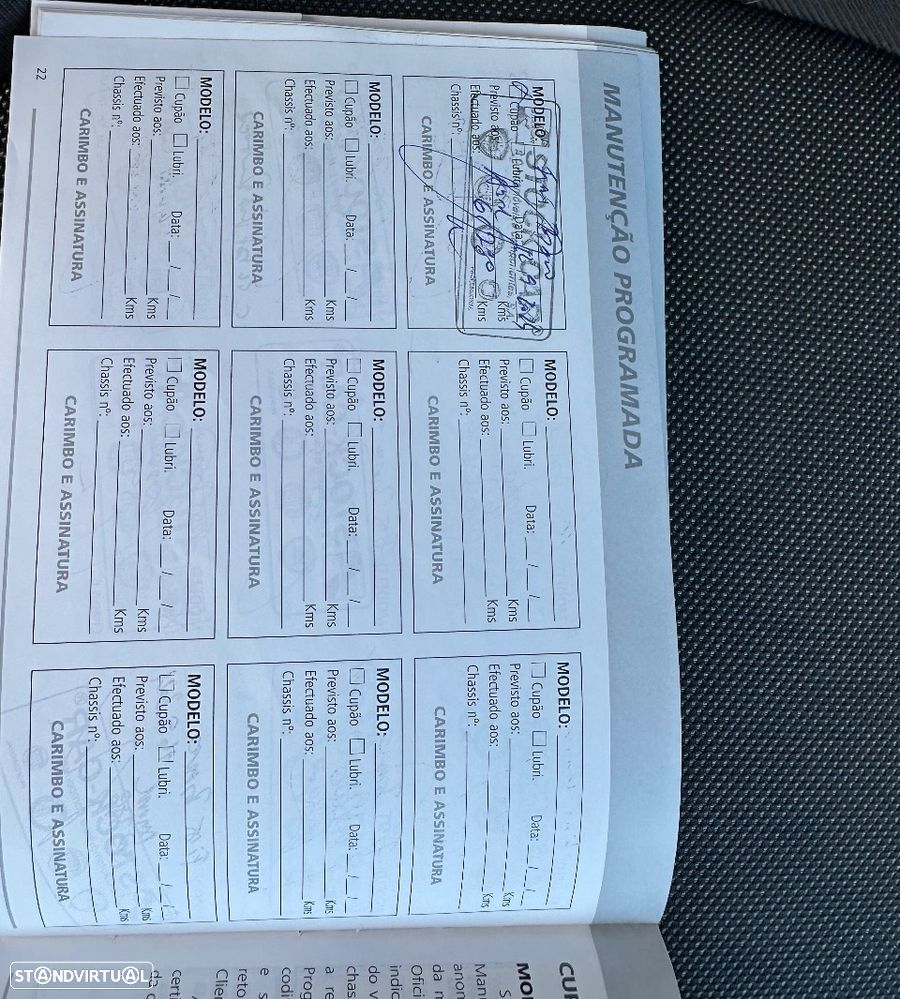 MANUTENÇÃO PROGRAMADA
MODELO:
Cupão Data:
Previsto aos: Kms
Efectuado aos: Kms
Chassis nº:
CARIMBO E ASSINATURA
MODELO:
Cupão Lubri. Data: __/__/__
Previsto aos: Kms
Efectuado aos: Kms
Chassis nº:
CARIMBO E ASSINATURA
MODELO:
Cupão Lubri. Data: __/__/__
Previsto aos: Kms
Efectuado aos: Kms
Chassis nº:
CARIMBO E ASSINATURA
MODELO:
Cupão Lubri. Data: __/__/__
Previsto aos: Kms
Efectuado aos: Kms
Chassis nº:
CARIMBO E ASSINATURA
MODELO:
Cupão Lubri. Data: __/__/__
Previsto aos: Kms
Efectuado aos: Kms
Chassis nº:
CARIMBO E ASSINATURA
MODELO:
Cupão Lubri. Data: __/__/__
Previsto aos: Kms
Efectuado aos: Kms
Chassis nº:
CARIMBO E ASSINATURA
MODELO:
Cupão Lubri. Data: __/__/__
Previsto aos: Kms
Efectuado aos: Kms
Chassis nº:
CARIMBO E ASSINATURA
MODELO:
Cupão Lubri. Data: __/__/__
Previsto aos: Kms
Efectuado aos: Kms
Chassis nº:
CARIMBO E ASSINATURA
MODELO:
Cupão Lubri. Data: __/__/__
Previsto aos: Kms
Efectuado aos: Kms
Chassis nº:
CARIMBO E ASSINATURA
22
STANDVIRTUAL